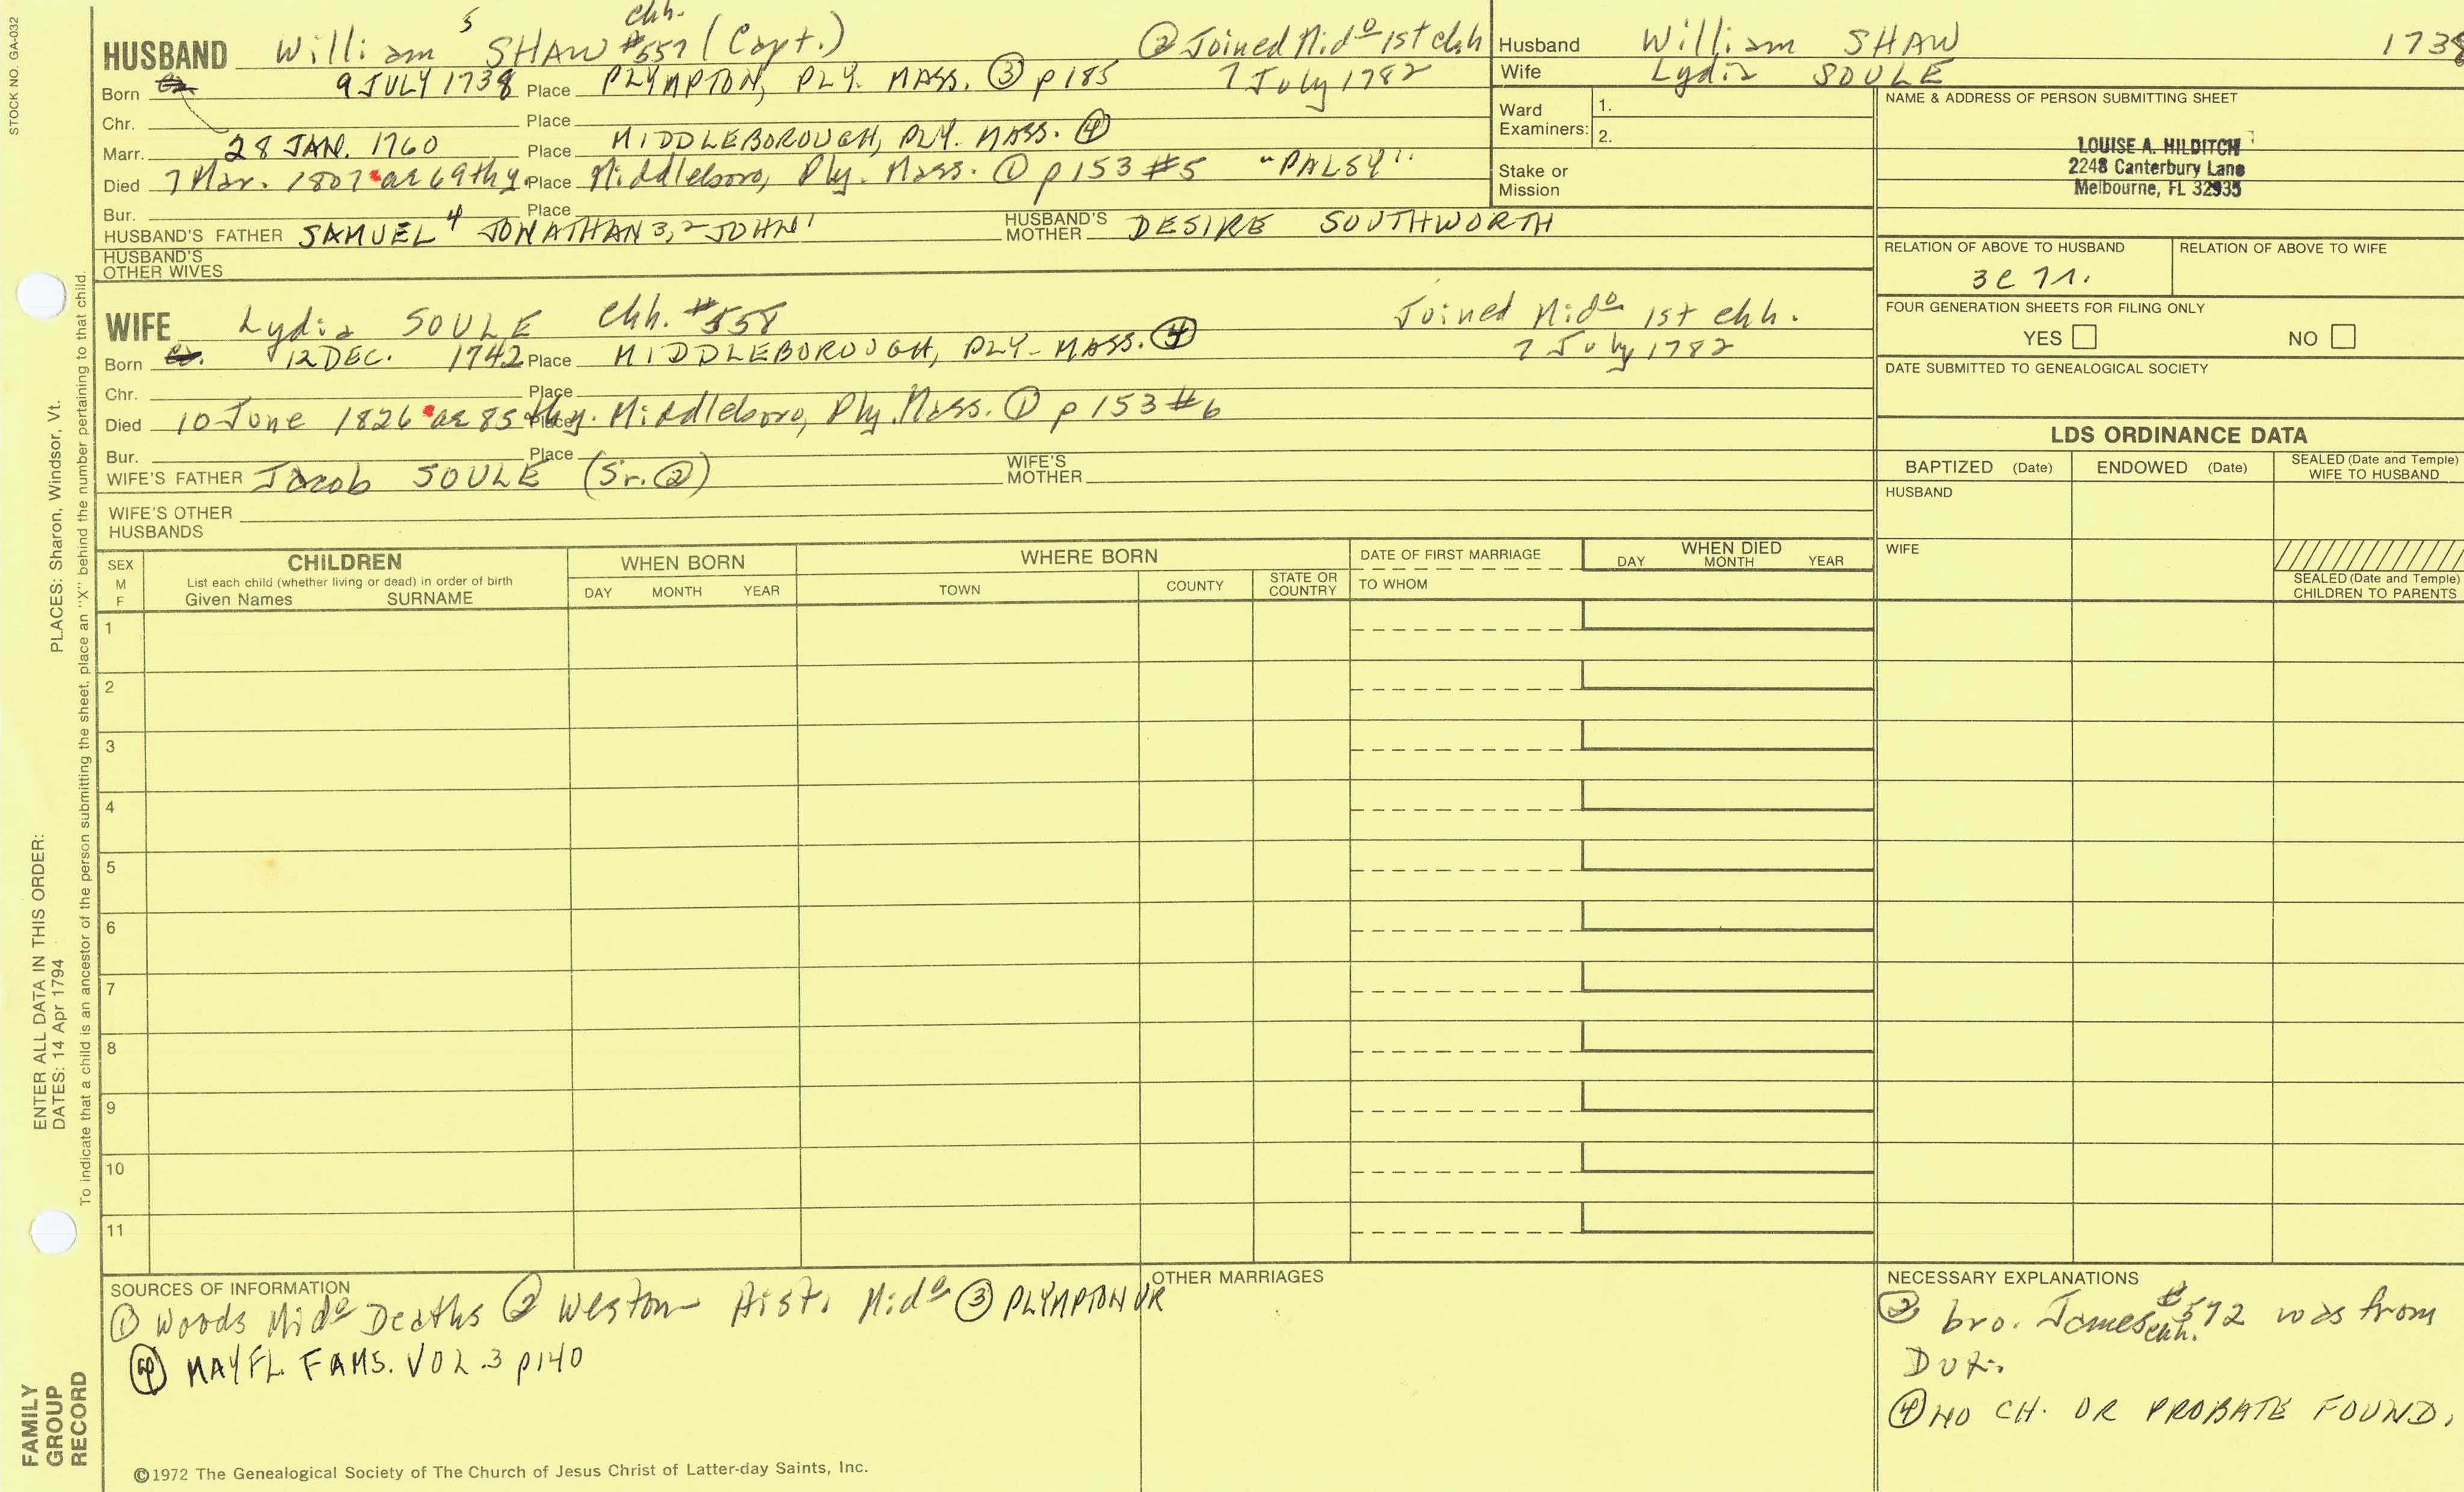 STOCK NO. GA-032
HUSBAND William 5 SHAW chh. #557 (Capt.) ② Joined Mido 1st chh 7 July 1782
Born 9 JULY 1738 Place PLYMPTON, PLY. MASS. ③ p185
Chr. Place
Marr. 28 JAN. 1760 Place MIDDLEBOROUGH, PLY. MASS. ④
Died 7 Mar. 1807 ae 69thy Place Middleboro, Ply. Mass. ① p153 #5 "PALSY"
Bur. Place
HUSBAND'S FATHER SAMUEL 4 JONATHAN 3,2 JOHN 1 HUSBAND'S MOTHER DESIRE SOUTHWORTH
HUSBAND'S OTHER WIVES
WIFE Lydia SOULE chh. #558 Joined Mido 1st chh. 7 July 1782
Born 12 DEC. 1742 Place MIDDLEBOROUGH, PLY- MASS. ④
Chr. Place
Died 10 June 1826 ae 85 thy. Place Middleboro, Ply. Mass. ① p153 #6
Bur. Place
WIFE'S FATHER Jacob SOULE (Sr. ②) WIFE'S MOTHER
WIFE'S OTHER HUSBANDS
Husband William SHAW 1738
Wife Lydia SOULE
Ward Examiners: 1. 2.
Stake or Mission
NAME & ADDRESS OF PERSON SUBMITTING SHEET
LOUISE A. HILDITCH
2248 Canterbury Lane
Melbourne, FL 32935
RELATION OF ABOVE TO HUSBAND RELATION OF ABOVE TO WIFE
FOUR GENERATION SHEETS FOR FILING ONLY
YES NO
DATE SUBMITTED TO GENEALOGICAL SOCIETY
LDS ORDINANCE DATA
BAPTIZED (Date) ENDOWED (Date) SEALED (Date and Temple) WIFE TO HUSBAND
HUSBAND
WIFE
SEALED (Date and Temple) CHILDREN TO PARENTS
SEX M F CHILDREN WHEN BORN WHERE BORN DATE OF FIRST MARRIAGE WHEN DIED
List each child (whether living or dead) in order of birth
Given Names SURNAME DAY MONTH YEAR TOWN COUNTY STATE OR COUNTRY TO WHOM DAY MONTH YEAR
1
2
3
4
5
6
7
8
9
10
11
SOURCES OF INFORMATION
① Woods Mido Deaths ② Weston Hist. Mido ③ PLYMPTON VR
④ MAYFL. FAMS. VOL.3 p140
OTHER MARRIAGES
NECESSARY EXPLANATIONS
② bro. James chh. #572 was from
Dux.
④ NO CH. OR PROBATE FOUND.
©1972 The Genealogical Society of The Church of Jesus Christ of Latter-day Saints, Inc.
FAMILY
GROUP
RECORD
ENTER ALL DATA IN THIS ORDER:
DATES: 14 Apr 1794
PLACES: Sharon, Windsor, Vt.
To indicate that a child is an ancestor of the person submitting the sheet, place an "X" behind the number pertaining to that child.